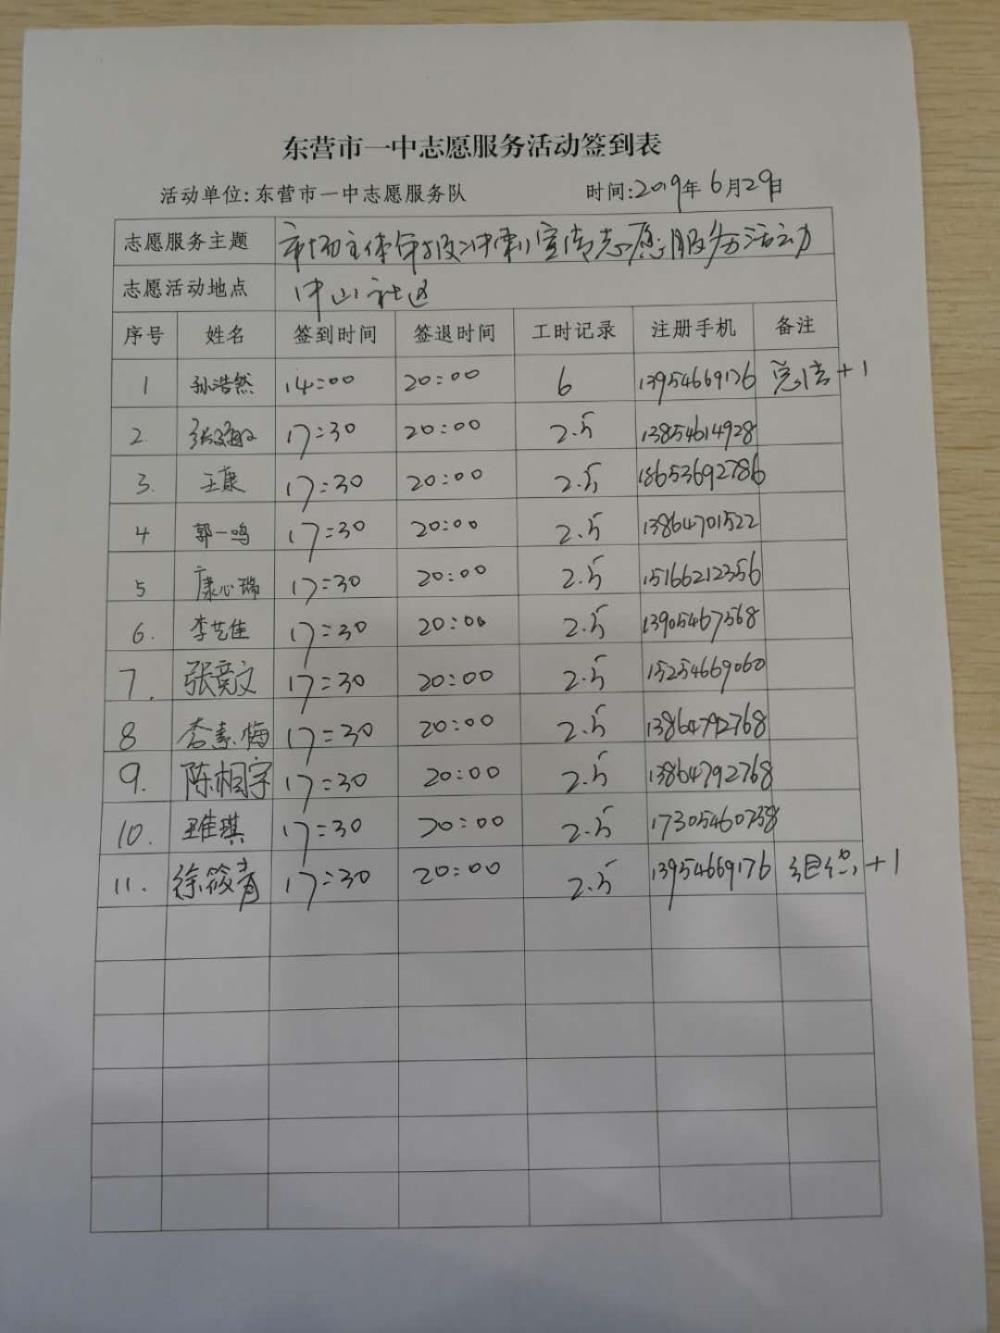 东营市一中志愿服务活动签到表
活动单位:东营市一中志愿服务队 时间:2019年6月29日
志愿服务主题 市场主体年报冲刺宣传志愿服务活动
志愿活动地点 中山社区
序号 姓名 签到时间 签退时间 工时记录 注册手机 备注
1 孙浩然 14:00 20:00 6 13954669176 +1
2. 17:30 20:00 2.5 13854614928
3. 王康 17:30 20:00 2.5 18653692786
4 郭一鸣 17:30 20:00 2.5 13864701522
5 康心瑞 17:30 20:00 2.5 15166212356
6. 李艺佳 17:30 20:00 2.5 13905467568
7. 张竞文 17:30 20:00 2.5 15254669060
8 李素梅 17:30 20:00 2.5 13864792768
9. 陈相宇 17:30 20:00 2.5 13864792768
10. 王维琪 17:30 20:00 2.5 17305460738
11. 徐筱青 17:30 20:00 2.5 13954669176 组织+1